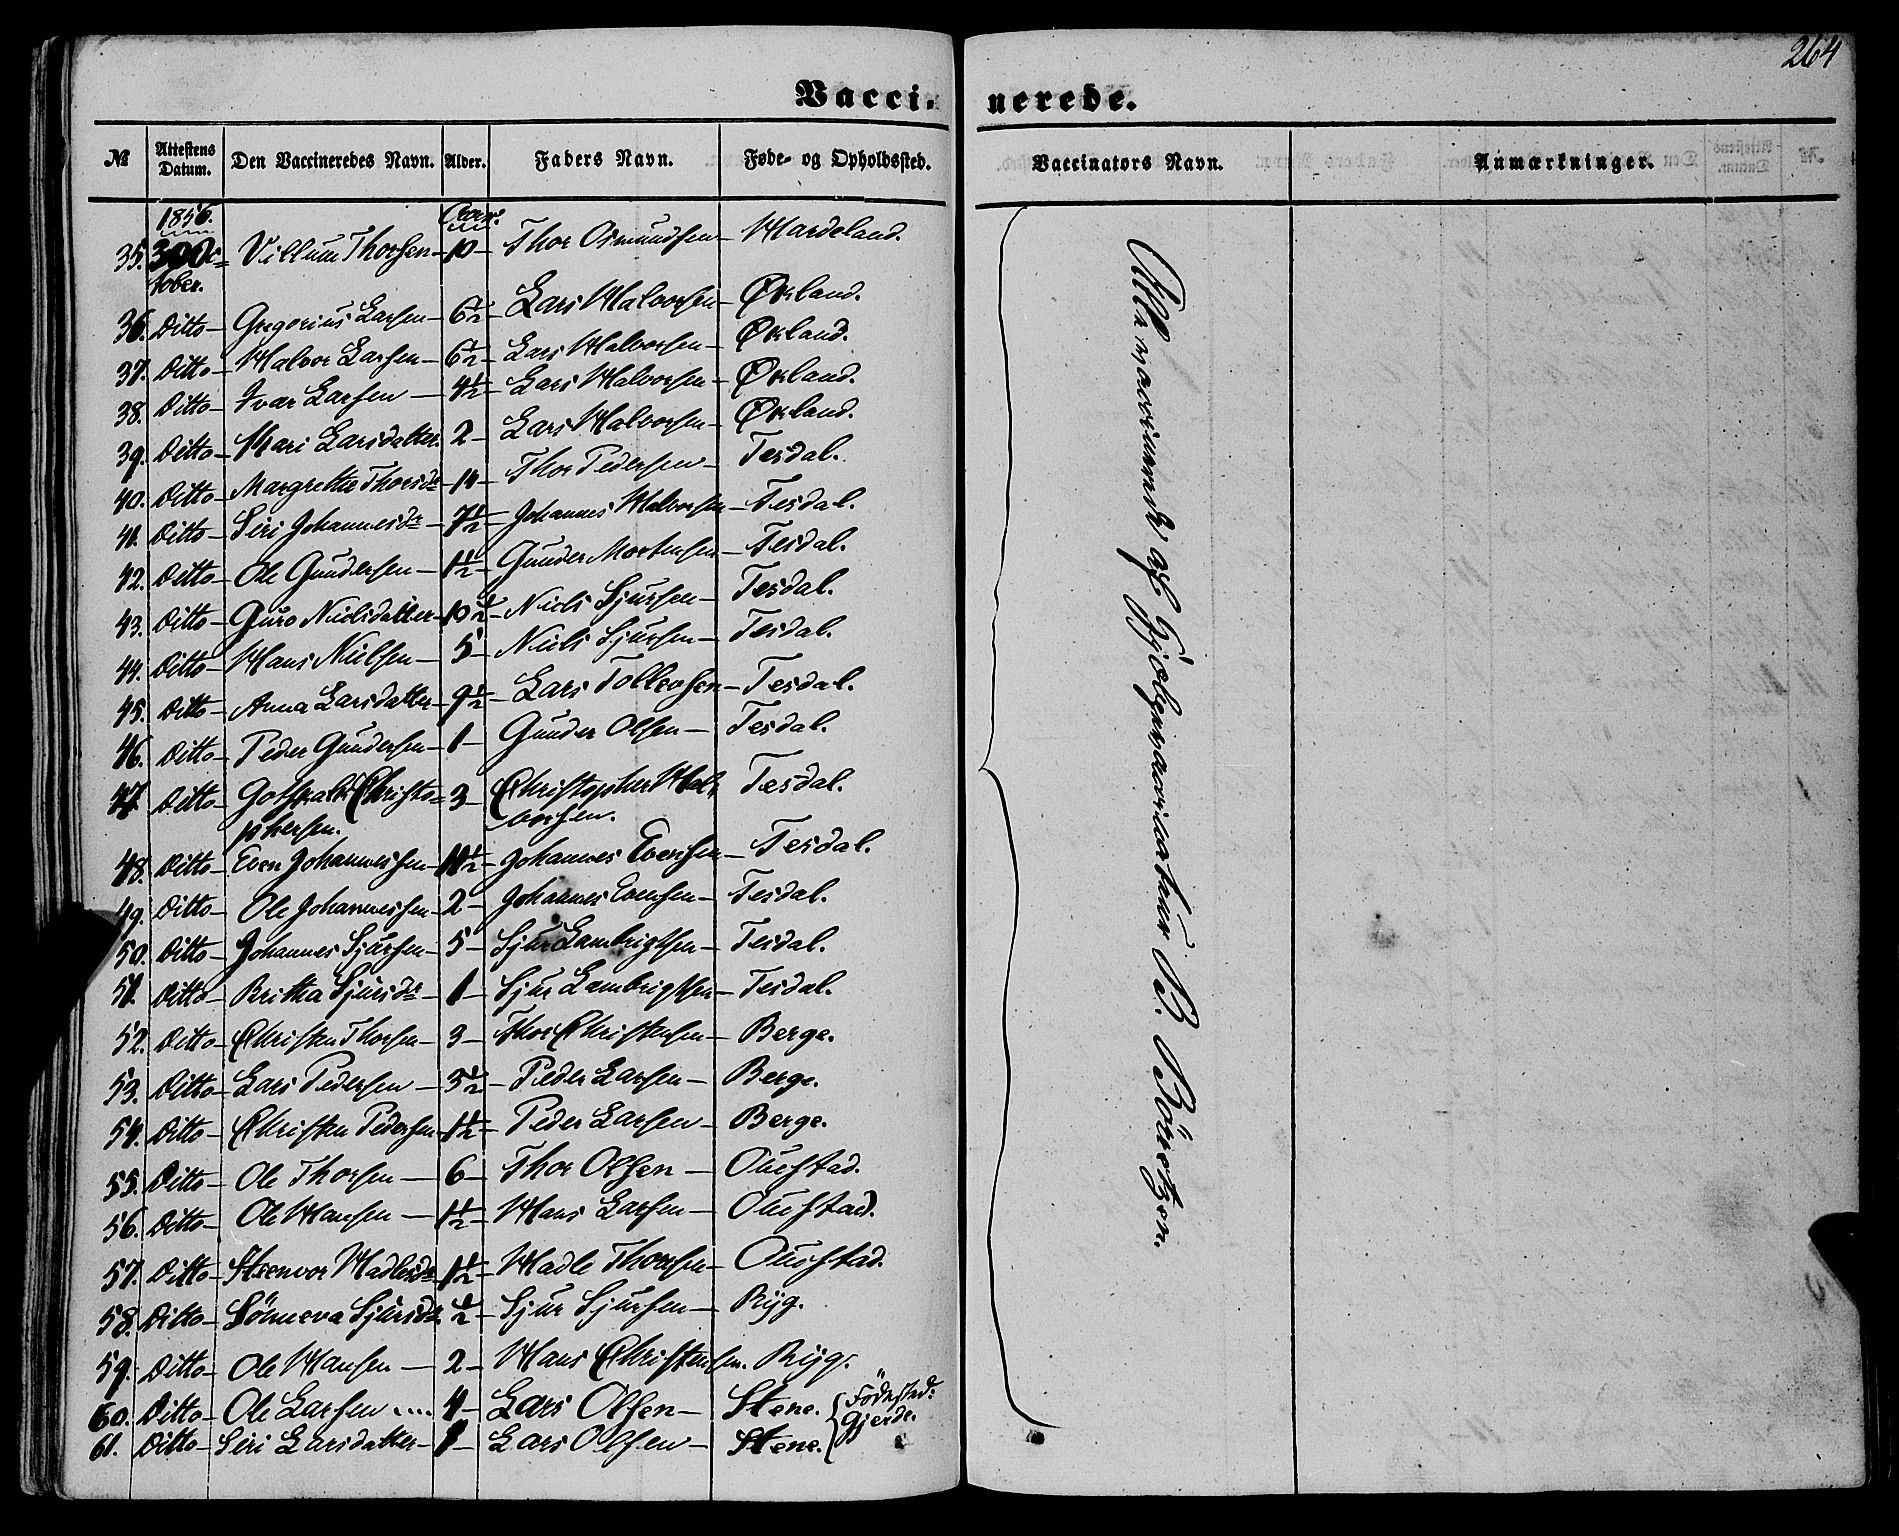 264
Vacci- nerede.
№ Attestens Datum. Den Vaccineredes Navn. Alder. Faders Navn. Føde- og Opholdssted. Vaccinators Navn. Anmærkninger.
1856. Aar.
35. 30 Oc= Villum Thorsen 10 Thor Osmundsen Hardeland.
tober.
36. Ditto Gregorius Larsen 6½ Lars Halvorsen Økland.
37. Ditto Halvor Larsen 6½ Lars Halvorsen Økland.
38. Ditto Ivar Larsen 4½ Lars Halvorsen Økland.
39. Ditto Mari Larsdatter 2 Lars Halvorsen Økland.
40. Ditto Margrethe Thorsdr 14 Thor Pedersen Tesdal.
41. Ditto Siri Johannesdr 7½ Johannes Halvorsen Tesdal.
42. Ditto Ole Gundersen 1½ Gunder Mortensen Tesdal.
43. Ditto Guro Nielsdatter 10½ Niels Sjursen Tesdal.
44. Ditto Hans Nielsen 5 Niels Sjursen Tesdal.
45. Ditto Anna Larsdatter 9½ Lars Tollevsen Tesdal.
46. Ditto Peder Gundersen 1 Gunder Olsen Tesdal.
47. Ditto Gotskalk Christo= 3 Christopher Hal= Tesdal.
phersen. vorsen.
48. Ditto Even Johannessen 11½ Johannes Evensen Tesdal.
49. Ditto Ole Johannessen 2 Johannes Evensen Tesdal.
50. Ditto Johannes Sjursen 5 Sjur Lambrigtsen Tesdal.
51. Ditto Britha Sjursdr 1 Sjur Lambrigtsen Tesdal.
52. Ditto Christen Thorsen 3 Thor Christensen Berge.
53. Ditto Lars Pedersen 3½ Peder Larsen Berge.
54. Ditto Christen Pedersen 1½ Peder Larsen Berge.
55. Ditto Ole Thorsen 6 Thor Olsen Ouestad.
56. Ditto Ole Hansen 1½ Hans Larsen Ouestad.
57. Ditto Steenvor Hadlesdr 1½ Hadle Thorsen Ouestad.
58. Ditto Sönneva Sjursdr ½ Sjur Sjursen Ryg.
59. Ditto Ole Hansen 2 Hans Christensen. Ryg.
60. Ditto Ole Larsen .... 4 Lars Olsen Stene. Födested:
61. Ditto Siri Larsdatter 1 Lars Olsen Stene. Gjerde.
Alle vaccinerede af Hjælpevaccinateur B. B. Börretzen.